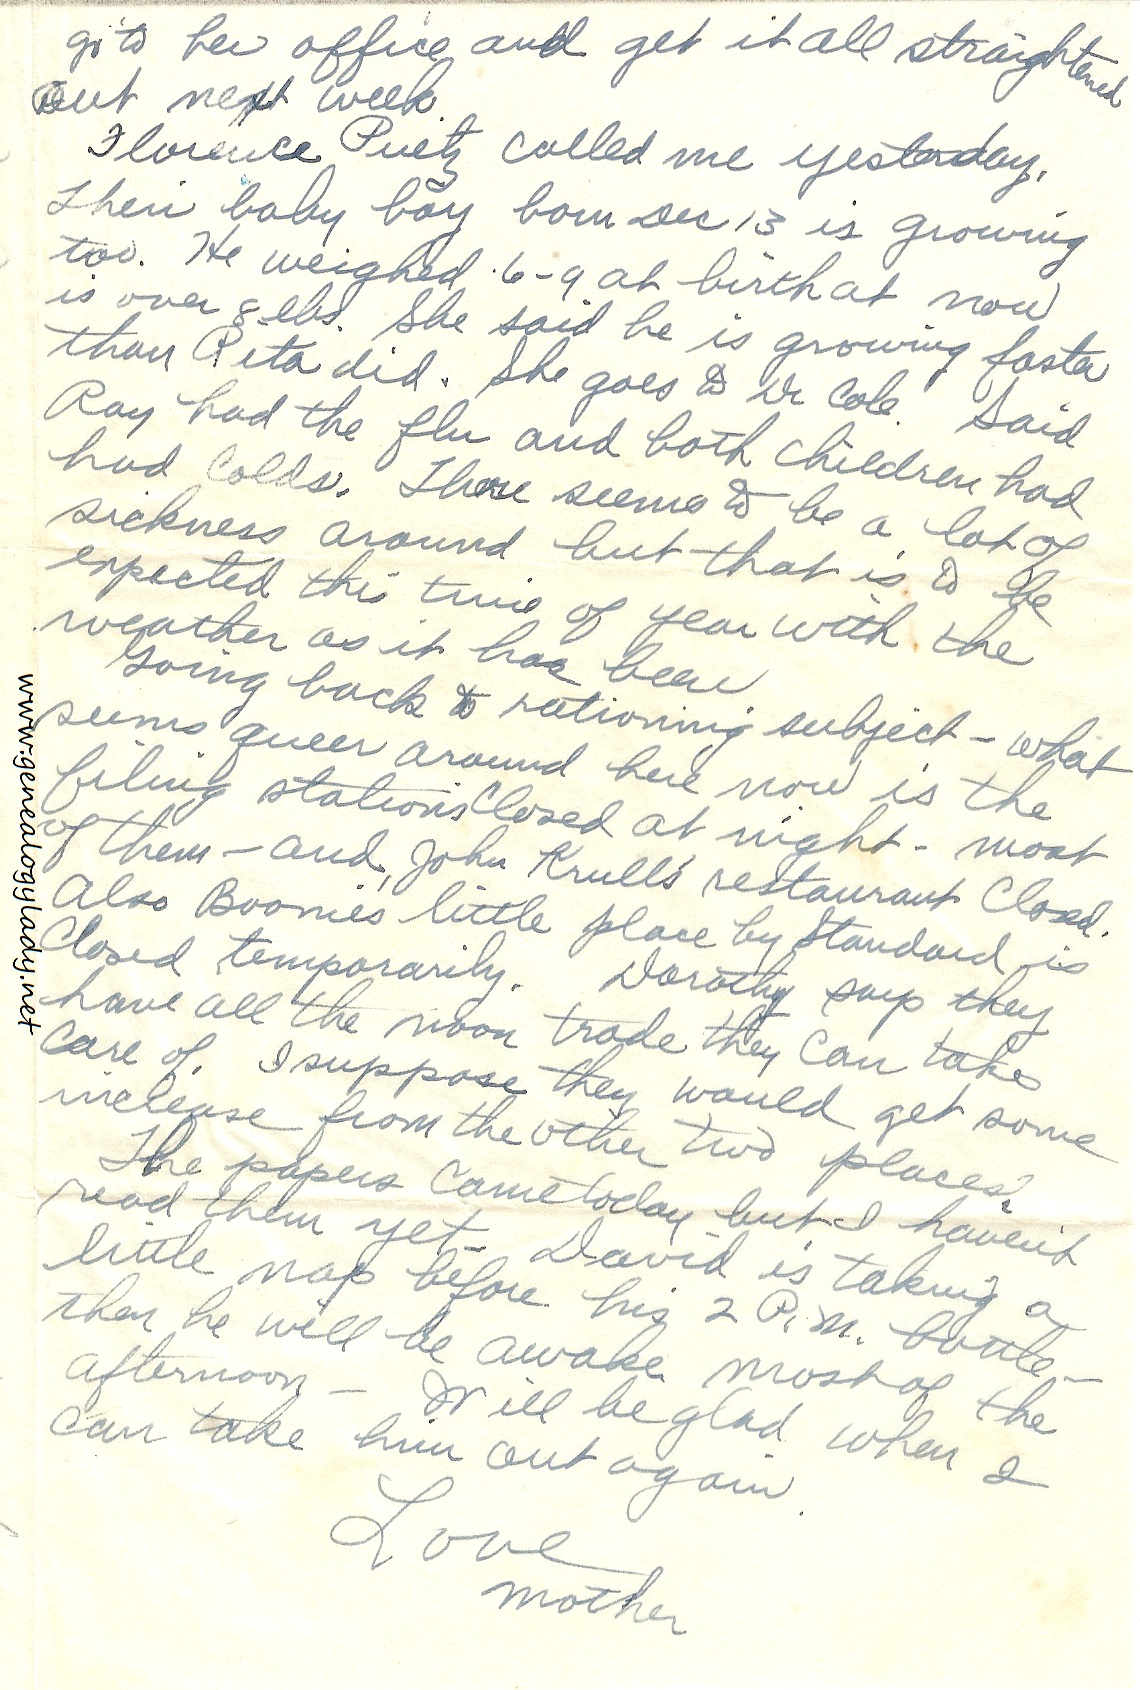 go to her office and get it all straightened
out next week.
Florence Puetz called me yesterday.
Their baby boy born Dec 13 is growing
too. He weighed 6-9 at birth at now
is over 8 lbs. She said he is growing faster
than Rita did. She goes to Dr Cole. Said
Ray had the flu and both children had
had colds. There seems to be a lot of
sickness around but that is to be
expected this time of year with the
weather as it has been
Going back to rationing subject - what
seems queer around here now is the
filing stations closed at night - most
of them - and John Krull's restaurant closed.
Also Boomie's little place by Standard is
closed temporarily. Dorothy says they
have all the noon trade they can take
care of. I suppose they would get some
increase from the other two places.
The papers came today but I haven't
read them yet. David is taking a
little nap before his 2 P.M. bottle -
then he will be awake most of the
afternoon - Will be glad when I
can take him out again.
Love
Mother
www.genealogylady.net